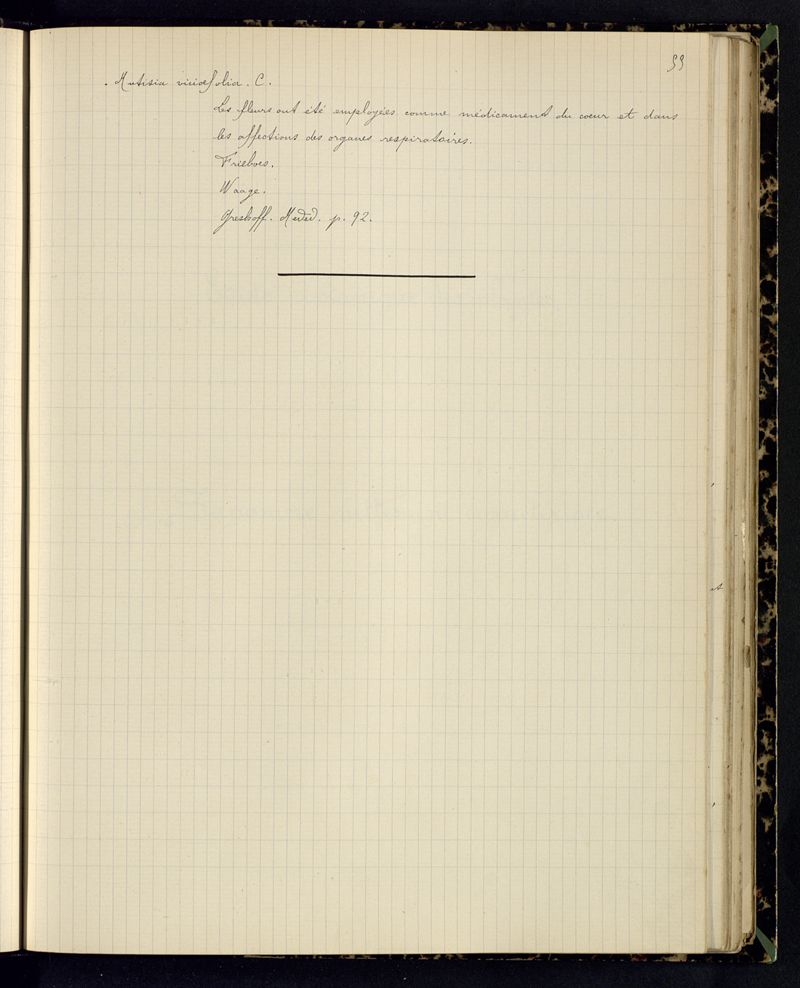 55
. Mutisia viciaefolia. C.
Les fleurs ont été employées comme médicament du coeur et dans
les affections des organes respiratoires.
Frieboes.
Waage.
Greshoff. Meded. p. 92.